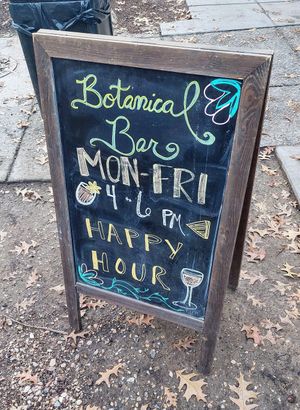 Botanical
Bar
MON-FRI
4-6 PM
HAPPY
HOUR